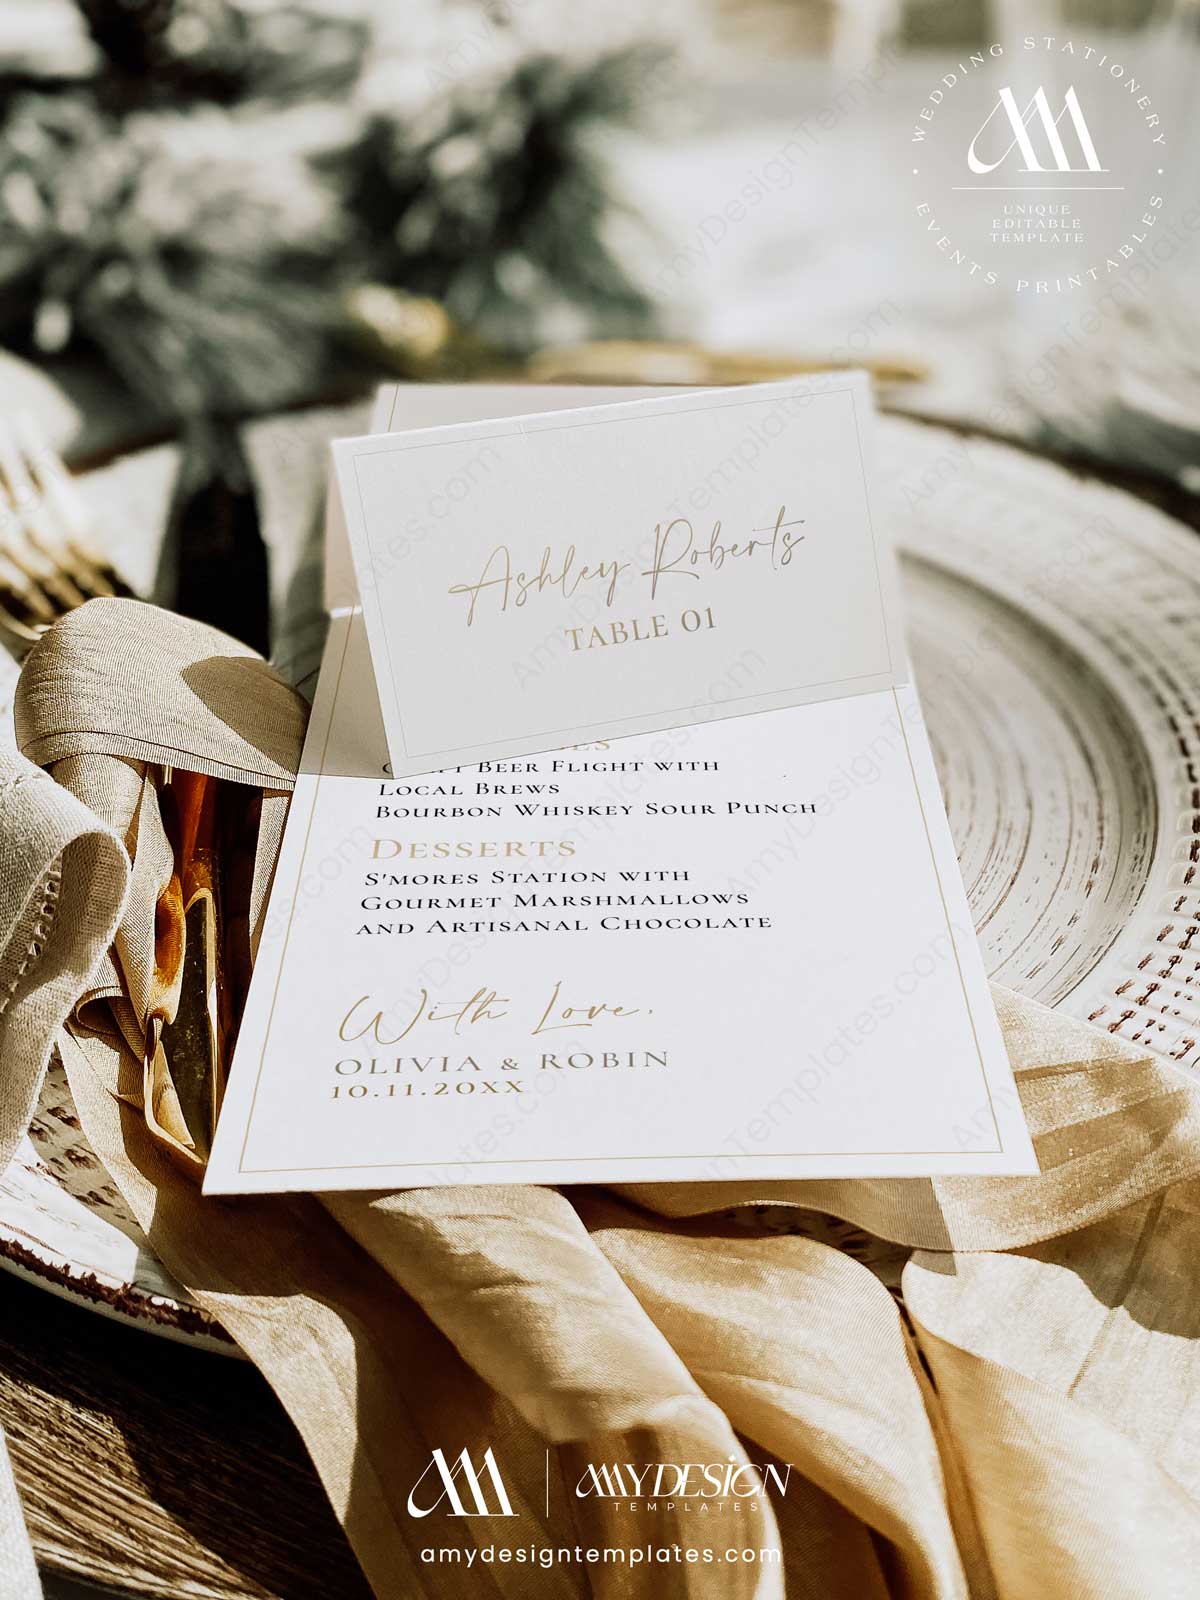 WEDDING STATIONERY
AM
UNIQUE
EDITABLE
TEMPLATE
EVENTS PRINTABLES
Ashley Roberts
TABLE 01
Beer Flight with
Local Brews
Bourbon Whiskey Sour Punch
Desserts
S'mores Station with
Gourmet Marshmallows
and Artisanal Chocolate
With Love,
OLIVIA & ROBIN
10.11.20XX
AM
AMYDESIGN
TEMPLATES
amydesigntemplates.com
AmyDesignTemplates.com